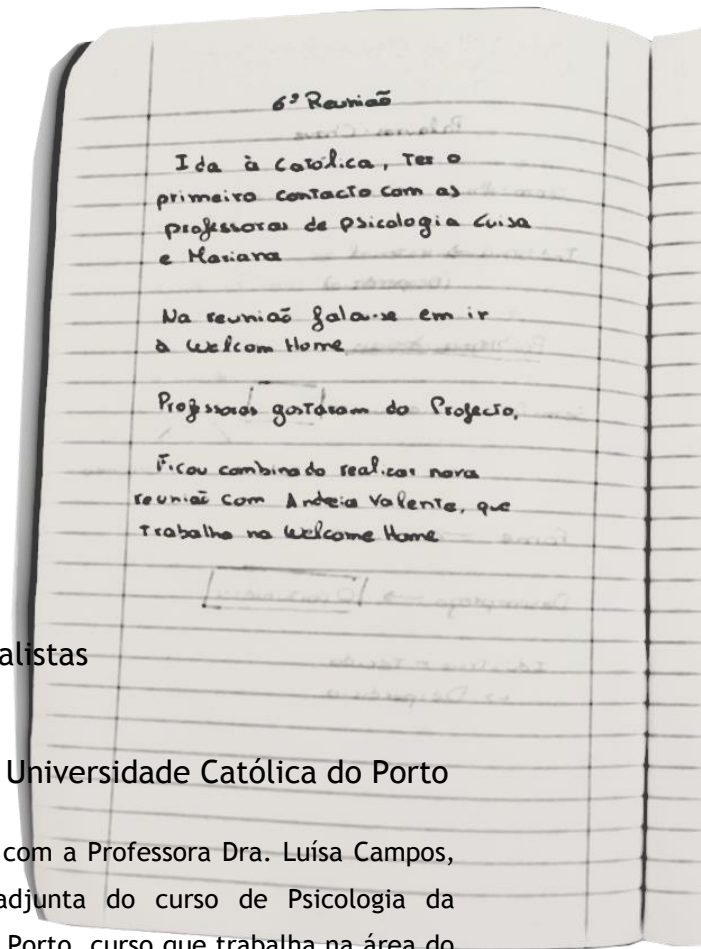 6ª Reunião
Ida à Católica, Ter o
primeiro contacto com as
professoras de psicologia Luisa
e Mariana
Na reunião fala-se em ir
à Welcom Home
Professoras gostaram do Projecto,
Ficou combinado realizar nova
reunião com Andreia Valente, que
Trabalha na Welcome Home
alistas
Universidade Católica do Porto
com a Professora Dra. Luísa Campos,
adjunta do curso de Psicologia da
Porto, curso que trabalha na área do